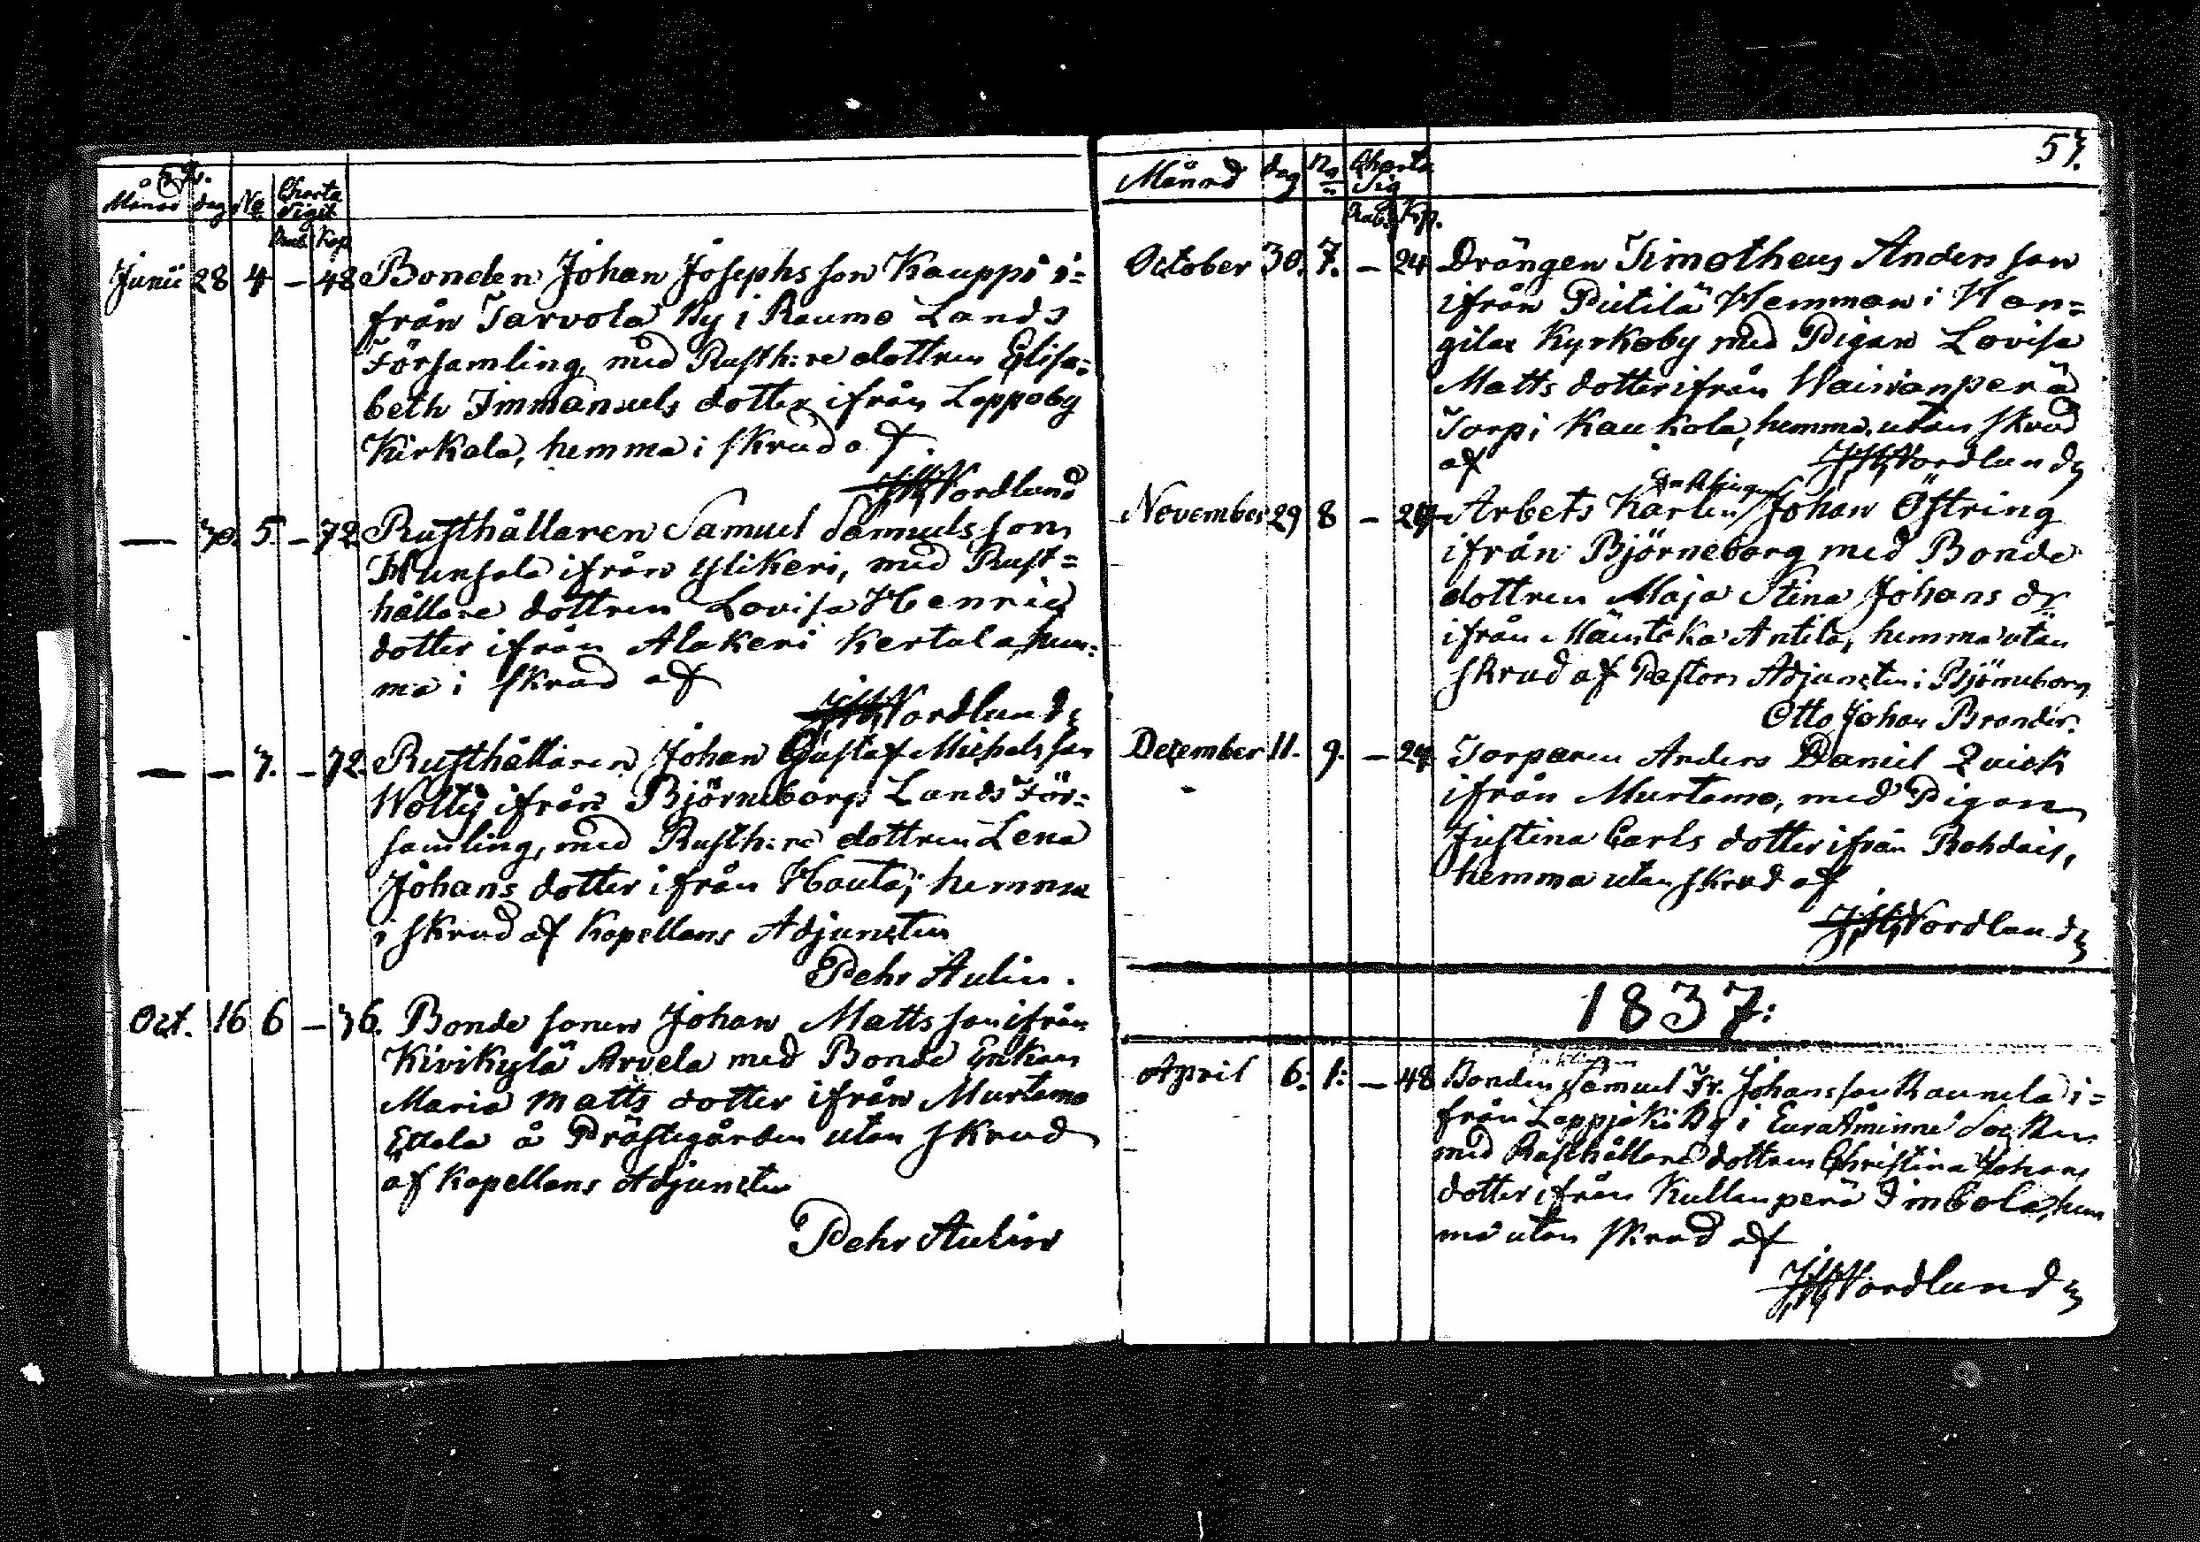 Månad dag No Charta Sigil.
Rub. Kop
Junii 28 4 – 48 Bonden Johan Josephs son Kauppi i=
från Tarvola By i Raumo Lands
Församling, med Rusth:re dottren Elisa=
beth Immanuels dotter ifrån Lappoby
Kirkala, hemma i skrud af
Nordlund
— 30. 5. – 72 Rusthållaren Samuel Samuels son
Hunsala ifrån Ylikeri, med Rust=
hållare dottren Lovisa Henrics
dotter ifrån Alakeri Kertala, hem=
ma i skrud af
Nordlund
— – 7. – 72. Rusthållaren Johan Gustaf Michels son
Woltij ifrån Björneborgs Lands För=
samling, med Rusth:re dottren Lena
Johans dotter ifrån Hauta; hemma
i skrud af Kapellans Adjuncten
Pehr Aulin.
Oct. 16 6 – 36. Bonde sonen Johan Matts son ifrån
Kivikylä Arvela med Bonde Enkan
Maria Matts dotter ifrån Murtamo
Ettala å Prästegården utan skrud
af Kapellans Adjuncten
Pehr Aulin
57.
Månad dag No Charta Sig
Rub. Kop.
October 30. 7. – 24 Drängen Timotheus Anders son
ifrån Piitilä Hemman i Hon=
gilax Kyrkoby med Pigan Lovisa
Matts dotter ifrån Waivanperä
Torp i Kaukola, hemma utan skrud
af Nordlund
Enklingen
November 29 8 – 24 Arbets Karlen Johan Östring
ifrån Björneborg med Bonde
dottren Maja Stina Johans dr
ifrån Mäntska Antila, hemma utan
skrud af Pastors Adjuncten i Björneborg
Otto Johan Brander.
December 11. 9. – 24 Torparen Anders Daniel Quick
ifrån Murtamo, med Pigan
Justina Carls dotter ifrån Rohdais,
hemma utan skrud af
Nordlund
1837:
April 6. 1: – 48 Bonden Samuel Fr. Johansson Raunela i=
från Lappjoki By i Eura Åminne Socken
med Rusthållare dottren Christina Johans
dotter ifrån Kullanperä Imbola, hem
ma utan skrud af
Nordlund